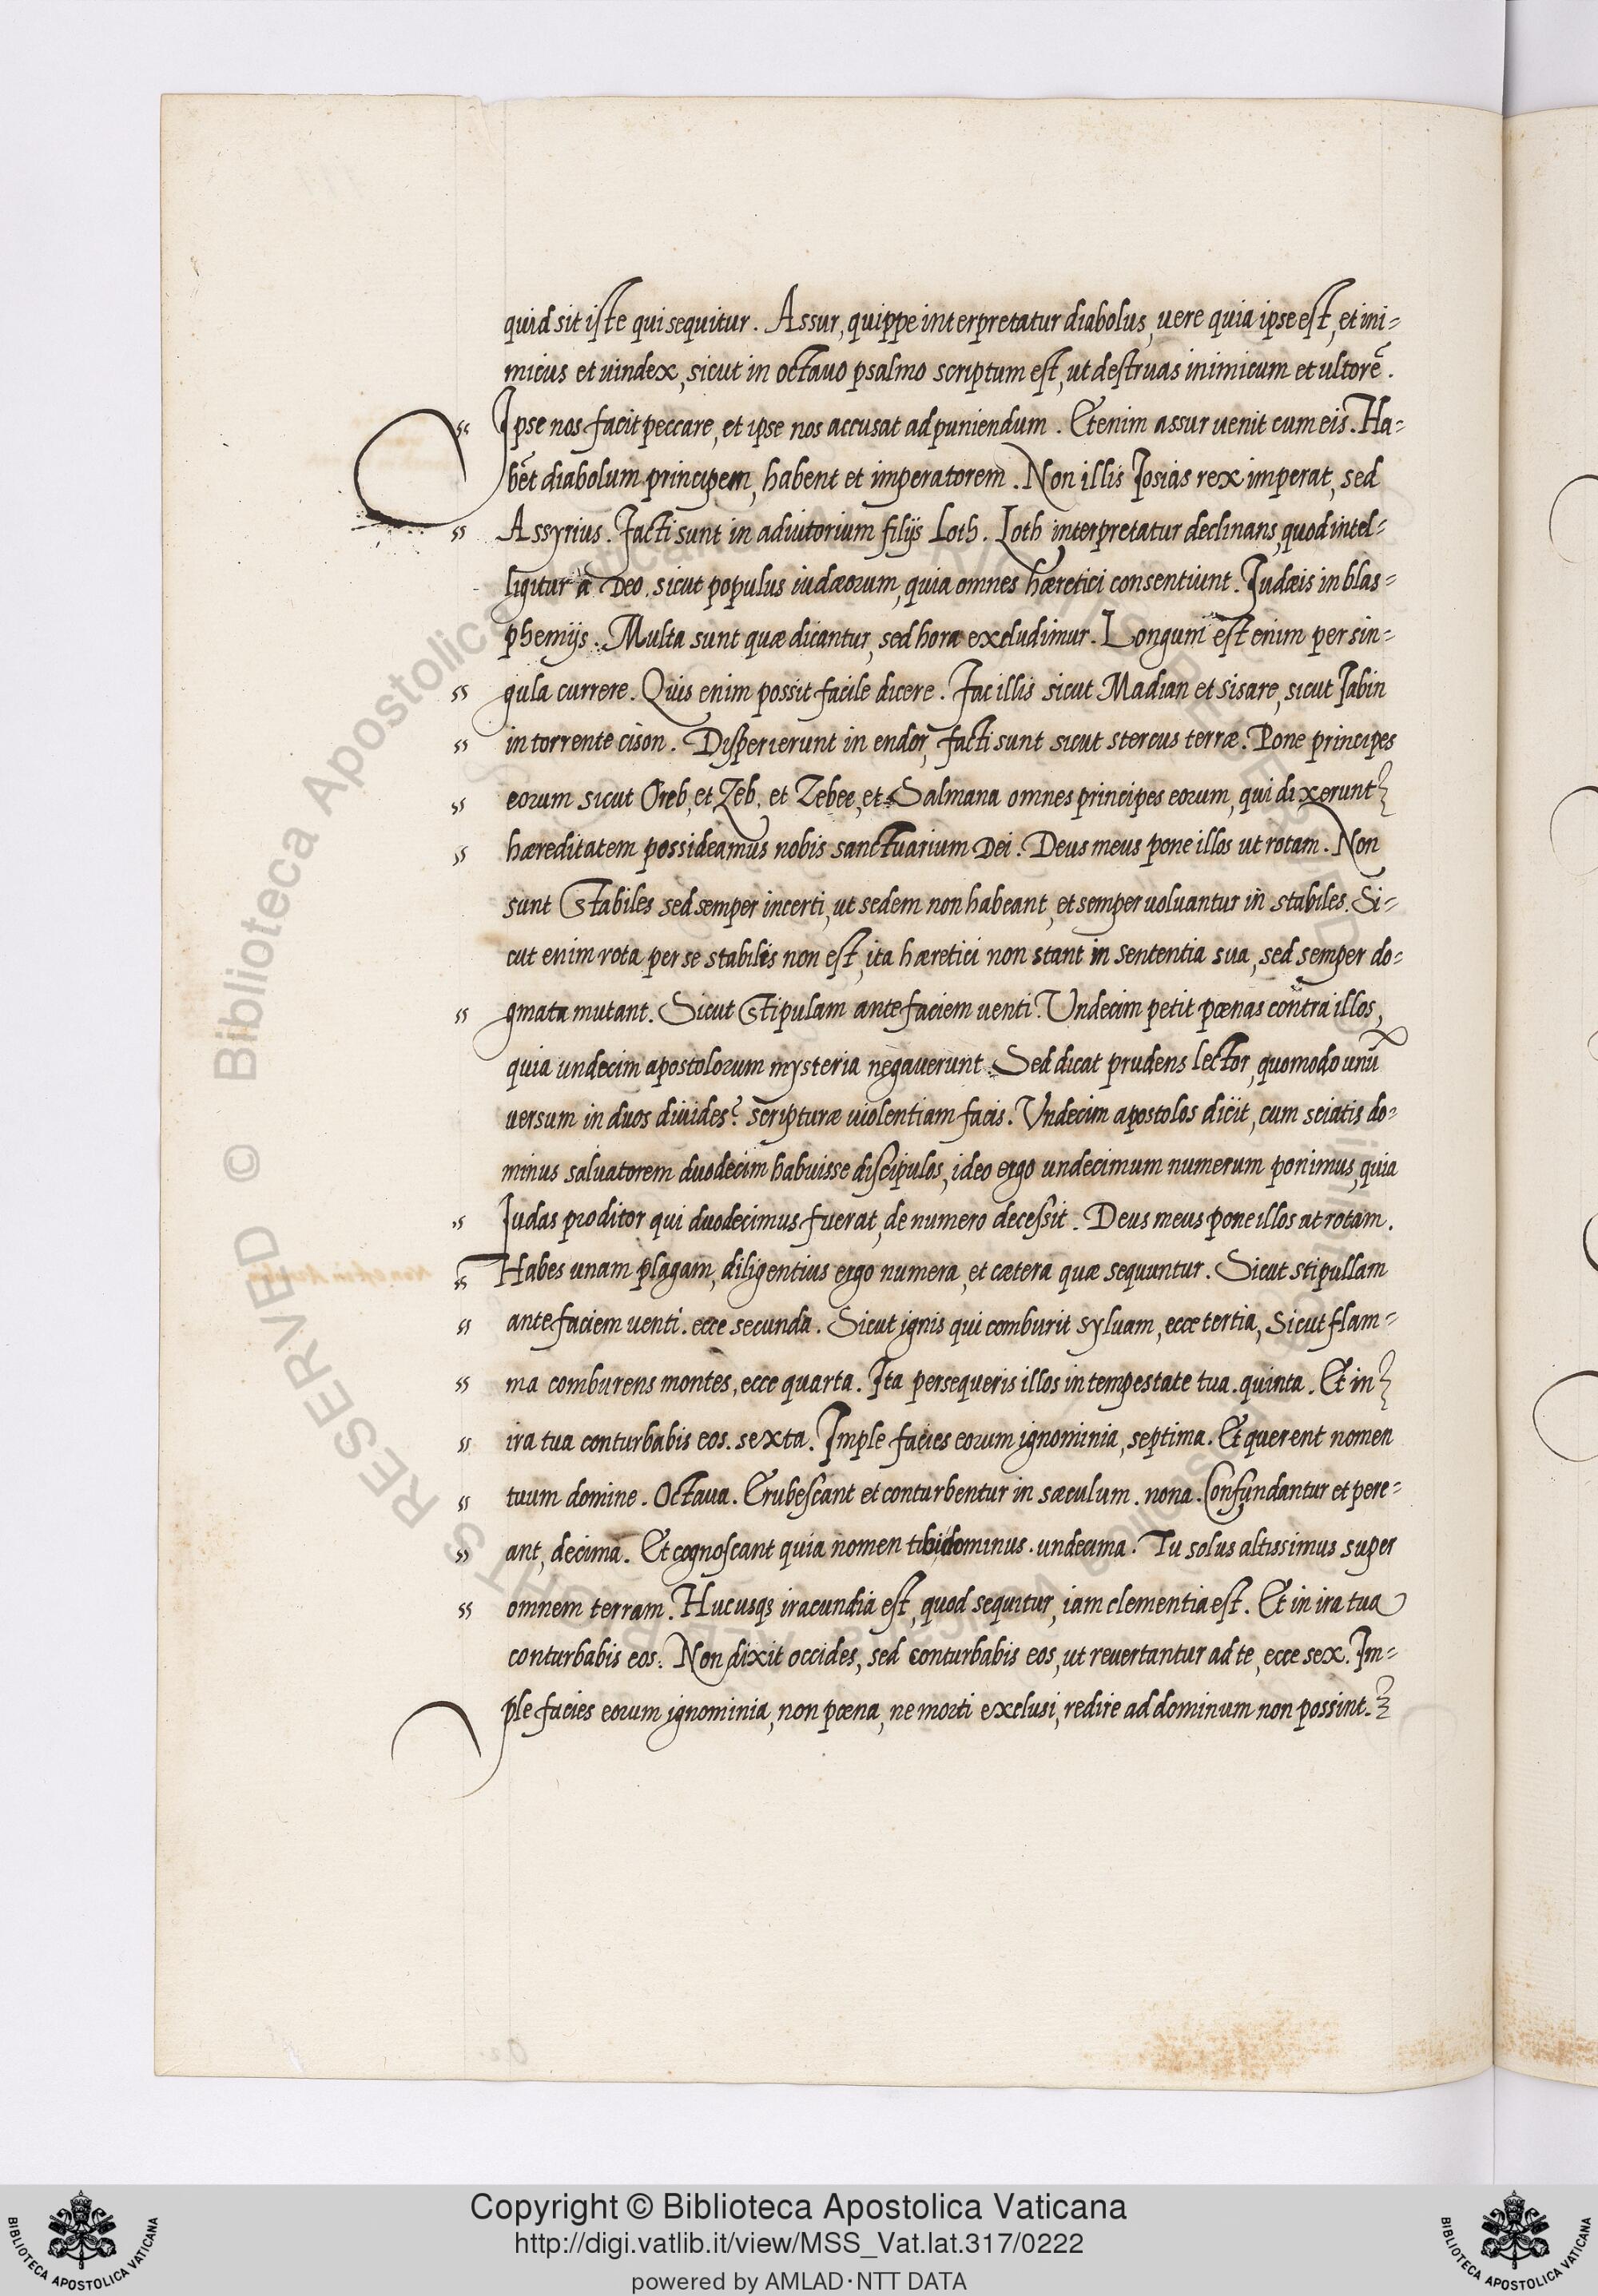 quid sit iste qui sequitur. Assur, quippe interpretatur diabolus, uere quia ipse est, et ini=
micus et uindex, sicut in octauo psalmo scriptum est, ut destruas inimicum et ultorē.
Ipse nos facit peccare, et ipse nos accusat ad puniendum. Etenim assur uenit cum eis. Ha=
bēt diabolum principem, habent et imperatorem. Non illis Iosias rex imperat, sed
Assyrius. Facti sunt in adiutorium filijs Loth. Loth interpretatur declinans, quod intel=
ligitur à Deo, sicut populus iudæorum, quia omnes hæretici consentiunt. Iudæis in blas=
phemijs. Multa sunt quæ dicantur, sed hora excludimur. Longum est enim per sin=
gula currere. Quis enim possit facile dicere. Fac illis sicut Madian et sisare, sicut Iabin
in torrente cison. Disperierunt in endor, facti sunt sicut stercus terræ. Pone principes
eorum sicut Oreb, et Zeb, et Zebee, et Salmana omnes principes eorum, qui dixerunt
hæreditatem possideamus nobis sanctuarium Dei. Deus meus pone illos ut rotam. Non
sunt stabiles sed semper incerti, ut sedem non habeant, et semper uoluantur in stabiles. Si=
cut enim rota per se stabilis non est, ita hæretici non stant in sententia sua, sed semper do=
gmata mutant. Sicut stipulam ante faciem uenti. Undecim petit pœnas contra illos,
quia undecim apostolorum mysteria negauerunt. Sed dicat prudens lector, quomodo unū
uersum in duos diuides? scripturæ uiolentiam facis. Vndecim apostolos dicit, cum sciatis do=
minus saluatorem duodecim habuisse discipulos, ideo ergo undecimum numerum ponimus, quia
Iudas proditor qui duodecimus fuerat, de numero decessit. Deus meus pone illos at rotam.
Habes unam plagam, diligentius ergo numera, et cætera quæ sequuntur. Sicut stipullam
ante faciem uenti. ecce secunda. Sicut ignis qui comburit syluam, ecce tertia, Sicut flam=
ma comburens montes, ecce quarta. Ita persequeris illos in tempestate tua. quinta. Et in
ira tua conturbabis eos. sexta. Imple facies eorum ignominia, septima. Et querent nomen
tuum domine. Octaua. Erubescant et conturbentur in sæculum. nona. Confundantur et pere=
ant, decima. Et cognoscant quia nomen tibi dominus. undecima. Tu solus altissimus super
omnem terram. Hucusqȝ iracundia est, quod sequitur, iam clementia est. Et in ira tua
conturbabis eos. Non dixit occides, sed conturbabis eos, ut reuertantur ad te, ecce sex. Im=
ple facies eorum ignominia, non pœna, ne morti exclusi, redire ad dominum non possint.
© Biblioteca Apostolica Vaticana
Copyright © Biblioteca Apostolica Vaticana
http://digi.vatlib.it/view/MSS_Vat.lat.317/0222
powered by AMLAD·NTT DATA
BIBLIOTECA APOSTOLICA VATICANA
BIBLIOTECA APOSTOLICA VATICANA